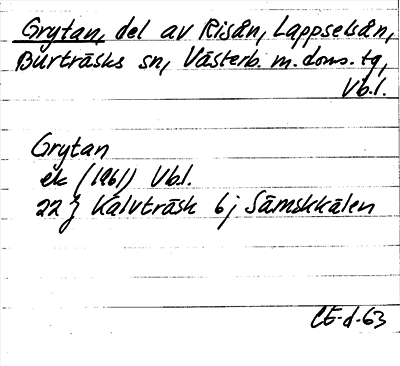 Grytan, del av Risån, Lappselsån,
Burträsks sn, Västerb. m. doms. tg,
Vb.l.
Grytan
ek (1961) Vb.l.
22 J Kalvträsk 6 j Sämskkålen
CE-d-63